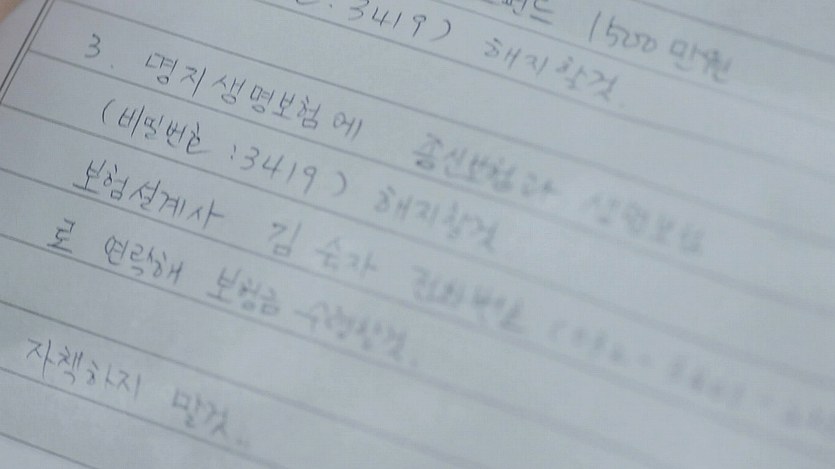 펀드 1500만원
: 3419) 해지할것
3. 명지생명보험에 종신보험과 생명보험
(비밀번호 : 3419) 해지할것
보험설계사 김순자 전화번호
로 연락해 보험금 수령할것.
자책하지 말것..